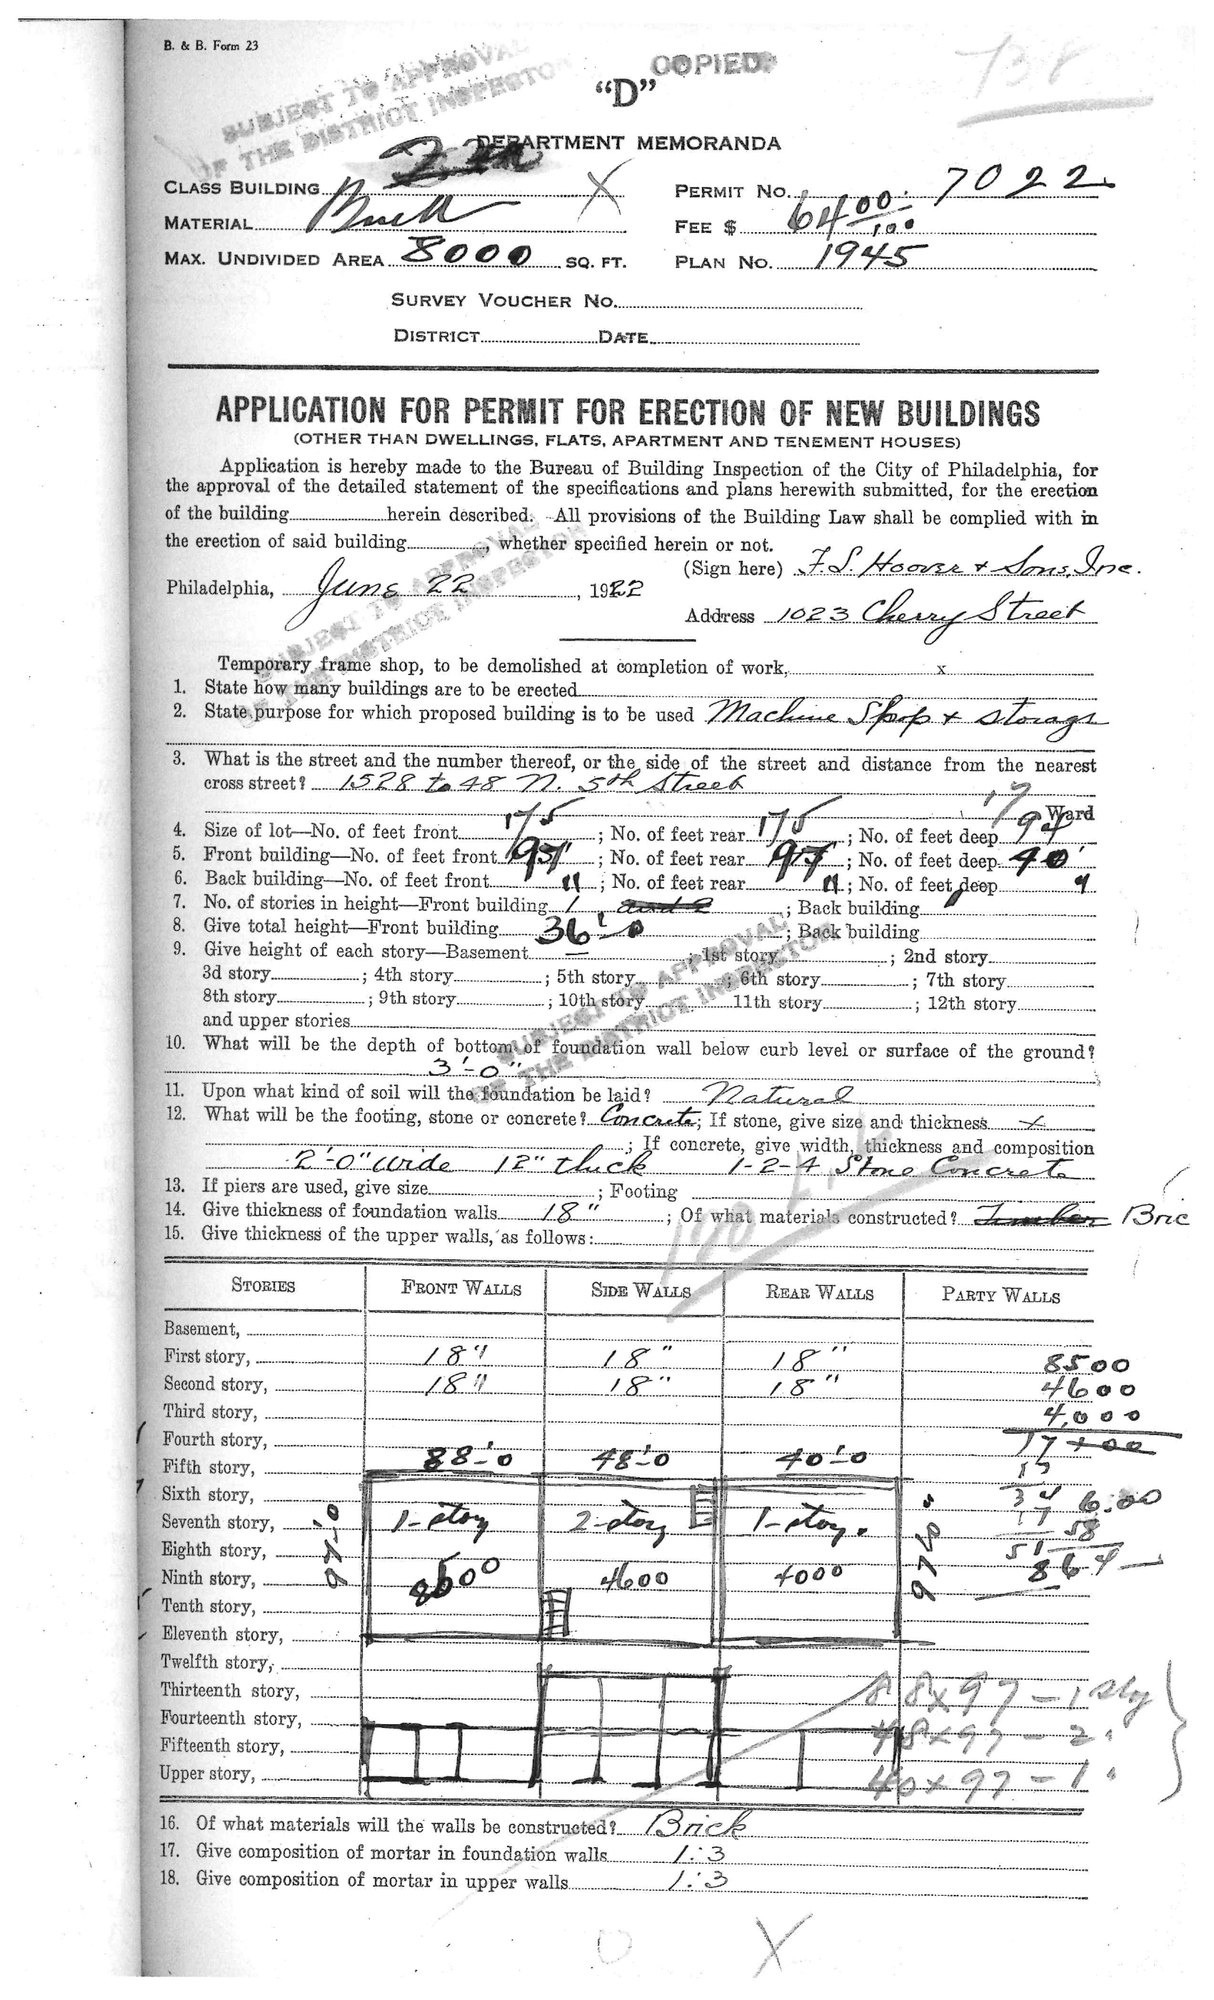 B. & B. Form 23
COPIED
738
SUBJECT TO APPROVAL
OF THE DISTRICT INSPECTOR
"D"
DEPARTMENT MEMORANDA
CLASS BUILDING X
PERMIT NO. 7022
MATERIAL Brick
FEE $ 64 00/100
MAX. UNDIVIDED AREA 8000 SQ. FT.
PLAN NO. 1945
SURVEY VOUCHER NO.
DISTRICT DATE
APPLICATION FOR PERMIT FOR ERECTION OF NEW BUILDINGS
(OTHER THAN DWELLINGS, FLATS, APARTMENT AND TENEMENT HOUSES)
Application is hereby made to the Bureau of Building Inspection of the City of Philadelphia, for
the approval of the detailed statement of the specifications and plans herewith submitted, for the erection
of the building herein described. All provisions of the Building Law shall be complied with in
the erection of said building, whether specified herein or not.
SUBJECT TO APPROVAL
OF THE DISTRICT INSPECTOR
(Sign here) F. S. Hoover & Sons, Inc.
Philadelphia, June 22, 1922
Address 1023 Cherry Street
Temporary frame shop, to be demolished at completion of work, x
1. State how many buildings are to be erected
2. State purpose for which proposed building is to be used Machine Shop & Storage
3. What is the street and the number thereof, or the side of the street and distance from the nearest
cross street? 1528 to 48 N. 5th Street
17 Ward
4. Size of lot—No. of feet front 175; No. of feet rear 175; No. of feet deep 97
5. Front building—No. of feet front; No. of feet rear; No. of feet deep 40'
6. Back building—No. of feet front "; No. of feet rear "; No. of feet deep "
7. No. of stories in height—Front building 1 and 2; Back building
8. Give total height—Front building 36'-0; Back building
9. Give height of each story—Basement —; 1st story; 2nd story
3d story; 4th story; 5th story; 6th story; 7th story
8th story; 9th story; 10th story 11th story; 12th story
and upper stories
SUBJECT TO APPROVAL
OF THE DISTRICT INSPECTOR
10. What will be the depth of bottom of foundation wall below curb level or surface of the ground?
3'-0"
11. Upon what kind of soil will the foundation be laid? Natural
12. What will be the footing, stone or concrete? Concrete; If stone, give size and thickness x
; If concrete, give width, thickness and composition
2'-0" wide 12" thick 1-2-4 Stone Concrete
13. If piers are used, give size; Footing
14. Give thickness of foundation walls 18"; Of what materials constructed? Timber Bric
15. Give thickness of the upper walls, as follows:
STORIES FRONT WALLS SIDE WALLS REAR WALLS PARTY WALLS
Basement,
First story, 18" 18" 18" 8500
Second story, 18" 18" 18" 4600
Third story, 4,000
Fourth story, 17100
88'-0 48'-0 40'-0 17
Fifth story,
Sixth story, 34 6.00
Seventh story, 1-story 2-story 1-story. 17 58
97'-0 97'-0"
Eighth story, 51 64
Ninth story, 8500 4600 4000
Tenth story,
Eleventh story,
Twelfth story,
Thirteenth story, 88x97-1 sty
Fourteenth story, 48x97-2 "
Fifteenth story,
Upper story, 40x97-1 "
16. Of what materials will the walls be constructed? Brick
17. Give composition of mortar in foundation walls 1:3
18. Give composition of mortar in upper walls 1:3
X